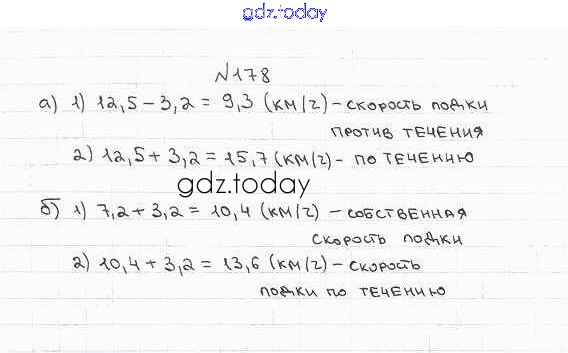 gdz.today
№178
а) 1) 12,5 - 3,2 = 9,3 (км/ч) - скорость лодки
против течения
2) 12,5 + 3,2 = 15,7 (км/ч) - по течению
gdz.today
б) 1) 7,2 + 3,2 = 10,4 (км/ч) - собственная
скорость лодки
2) 10,4 + 3,2 = 13,6 (км/ч) - скорость
лодки по течению